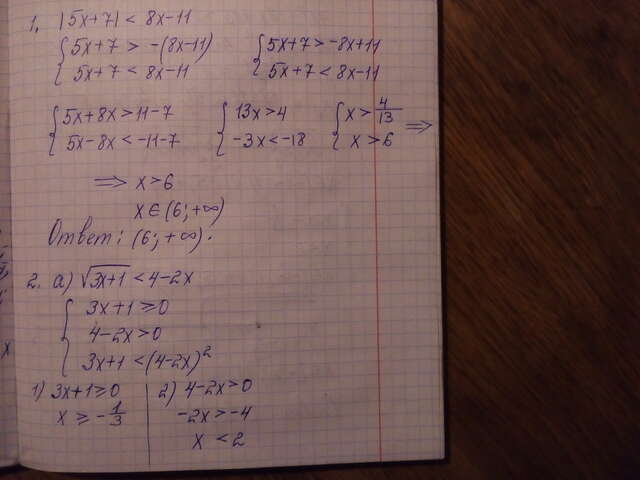 1. |5x+7| < 8x-11
{ 5x+7 > -(8x-11) { 5x+7 > -8x+11
5x+7 < 8x-11 5x+7 < 8x-11
{ 5x+8x > 11-7 { 13x > 4 { x > 4/13
5x-8x < -11-7 -3x < -18 x > 6 ⇒
⇒ x > 6
x ∈ (6; +∞)
Ответ: (6; +∞).
2. а) √(3x+1) < 4-2x
{ 3x+1 ≥ 0
4-2x > 0
3x+1 < (4-2x)²
1) 3x+1 ≥ 0 | 2) 4-2x > 0
x ≥ -1/3 | -2x > -4
x < 2